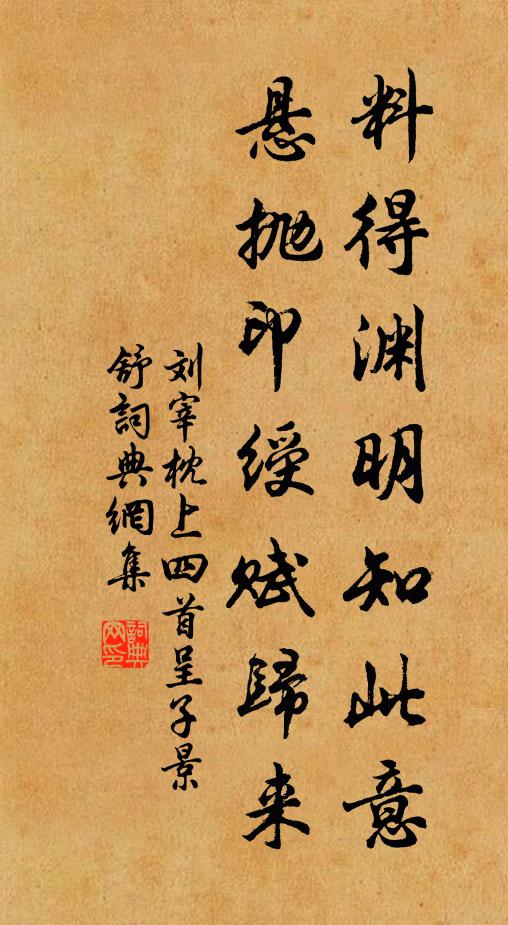 料得渊明知此意
悬抛印绶赋歸来
刘宰枕上四首呈子景
舒詞典網集
詞典
网印